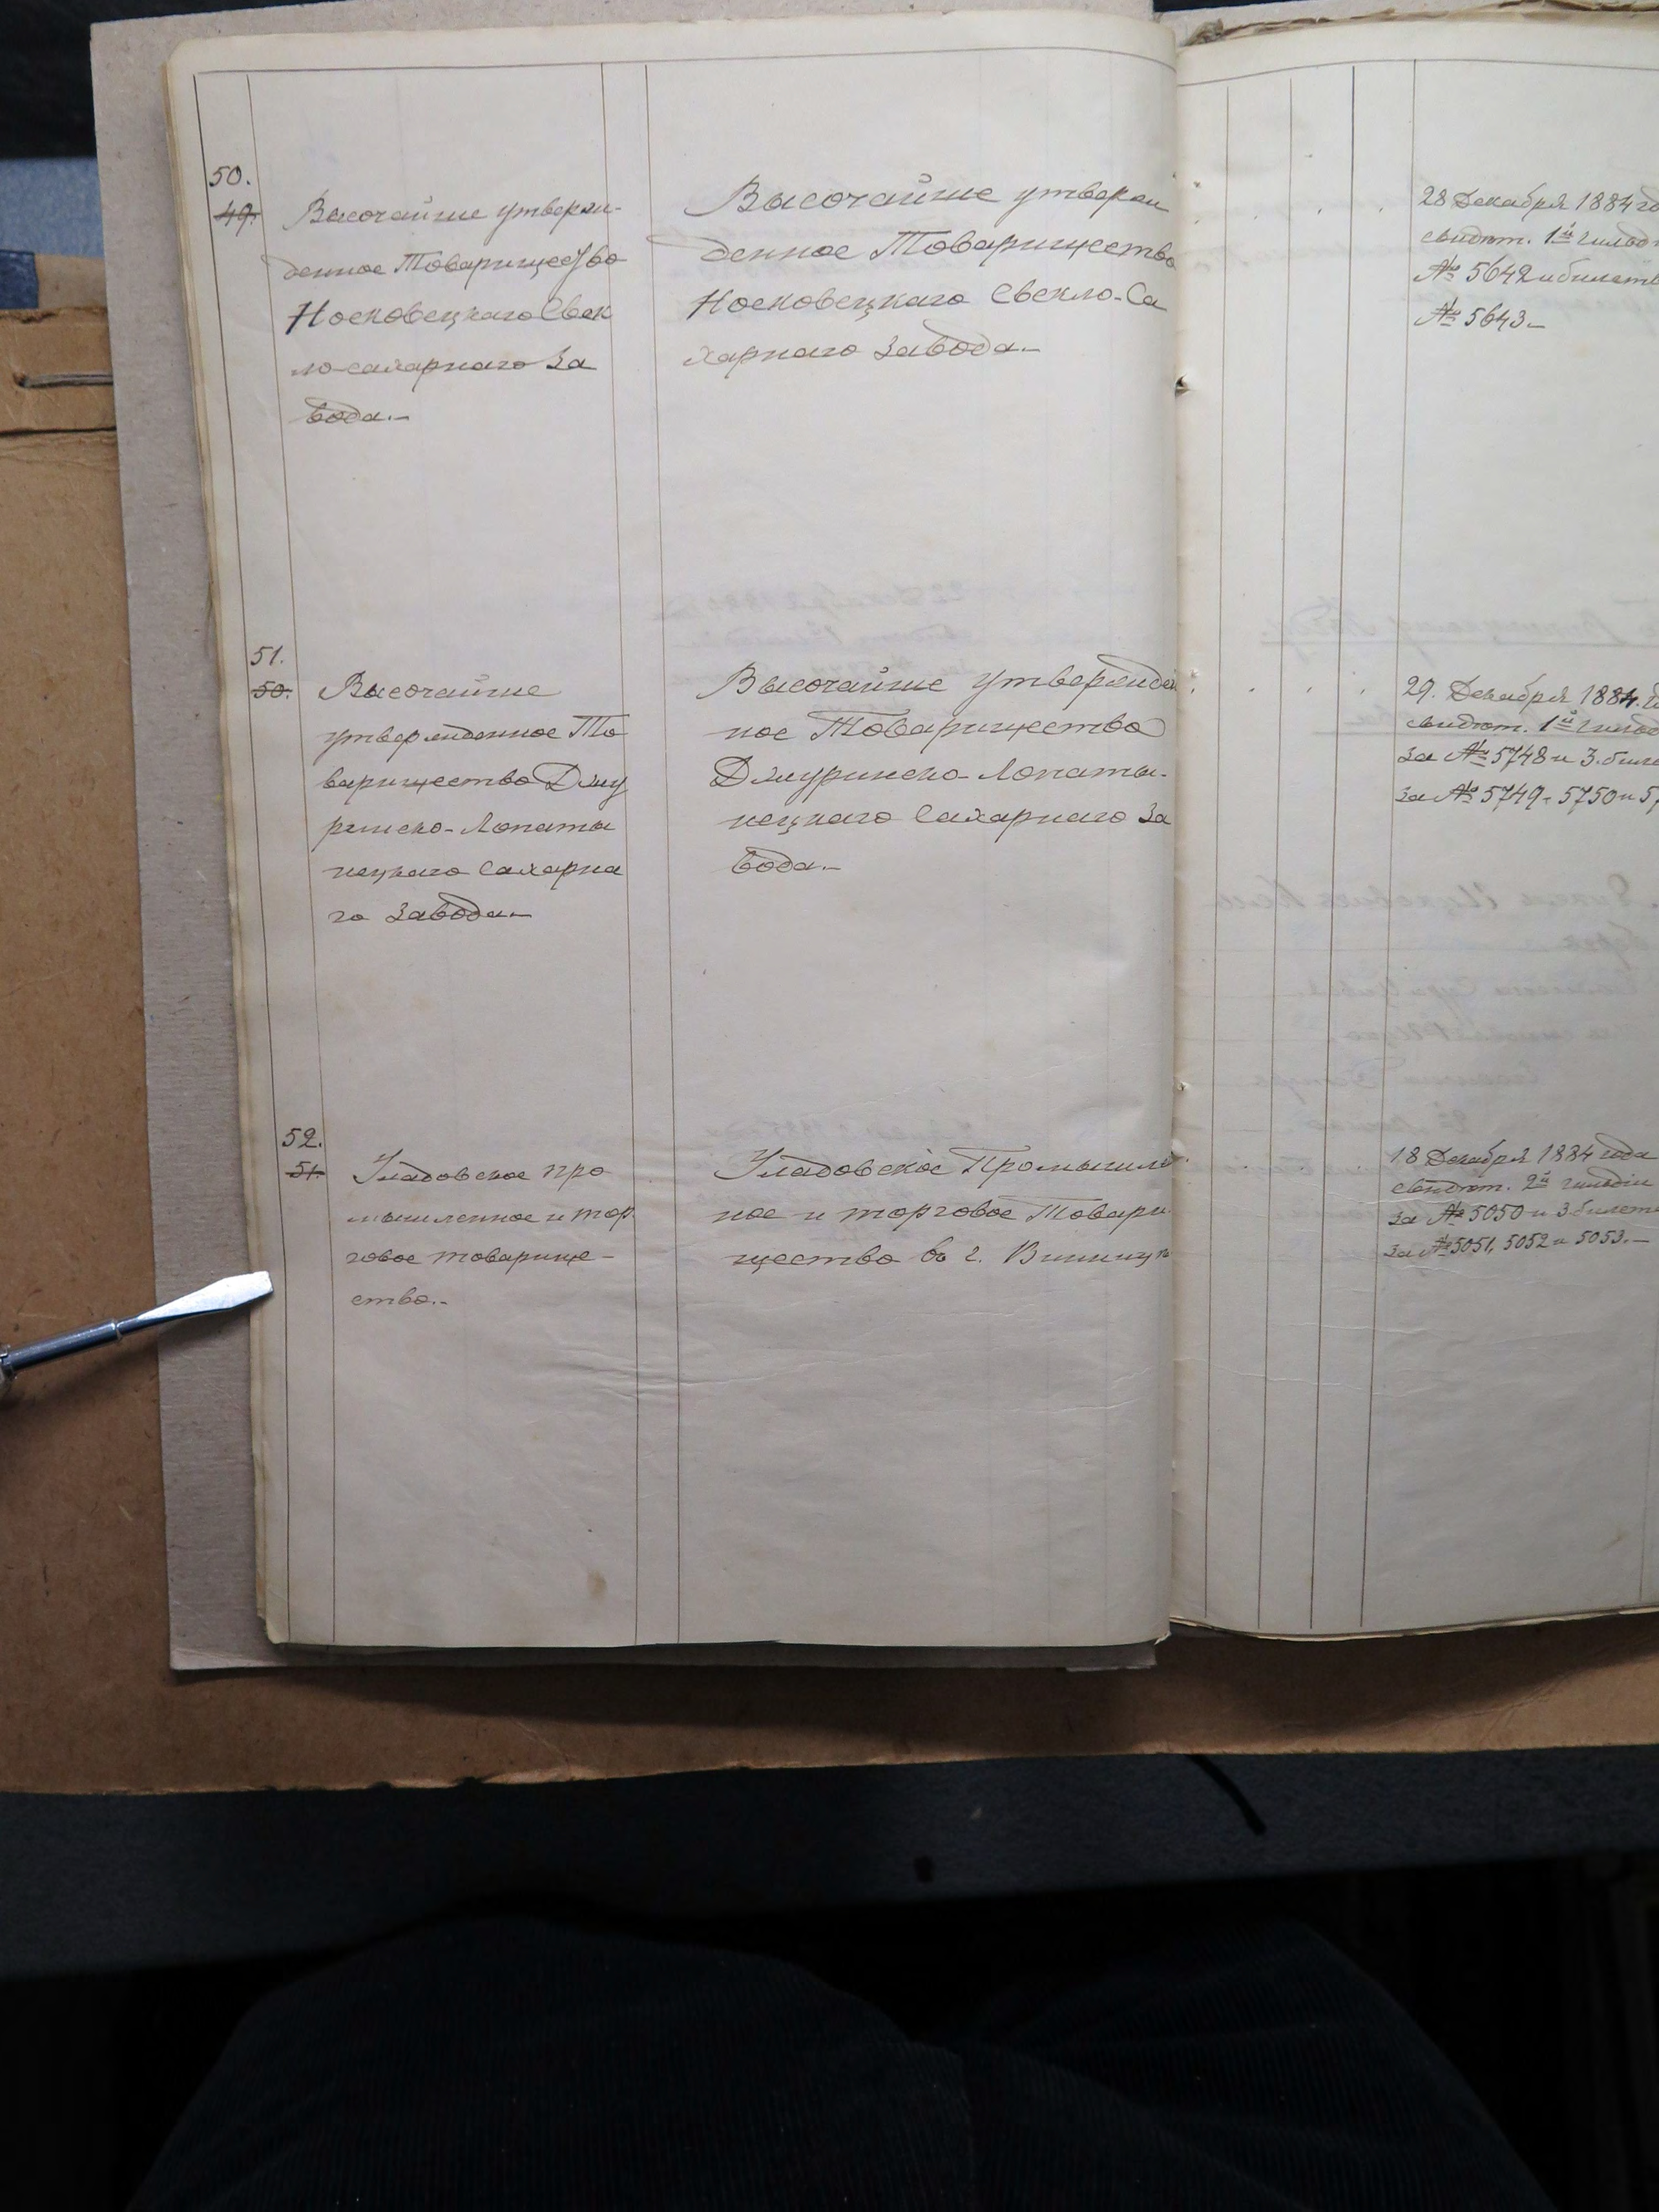 50.
49.
Высочайше утверж-
денное Товарищество
Носковецкаго Свек
ло-сахарнаго За
вода.-
Высочайше утверж
денное Товарищество
Носковецкаго Свекло-Са
харнаго Завода.-
28 Декабря 1884 го
свидѣт. 1й гильд
№ 5642 и билет
№ 5643-
51.
50.
Высочайше
утвержденное То
варищество Джу
ринско-Лопаты
нецкаго Сахарна
го Завода-
Высочайше утвержден
ное Товарищество
Джуринско-Лопаты-
нецкаго Сахарнаго За
вода.-
29. Декабря 1884.
свидѣт. 1й гильд
за № 5748 и 3. биле
за № 5749, 5750 и 5
52.
51.
Уладовское про
мышленное и тор
говое товарище-
ство.-
Уладовское Промышлен
ное и торговое Товари
щество въ г. Винницѣ
18 Декабря 1884 года
свидѣт. 2й гильдіи
за № 5050 и 3 билет
за № 5051, 5052 и 5053.-